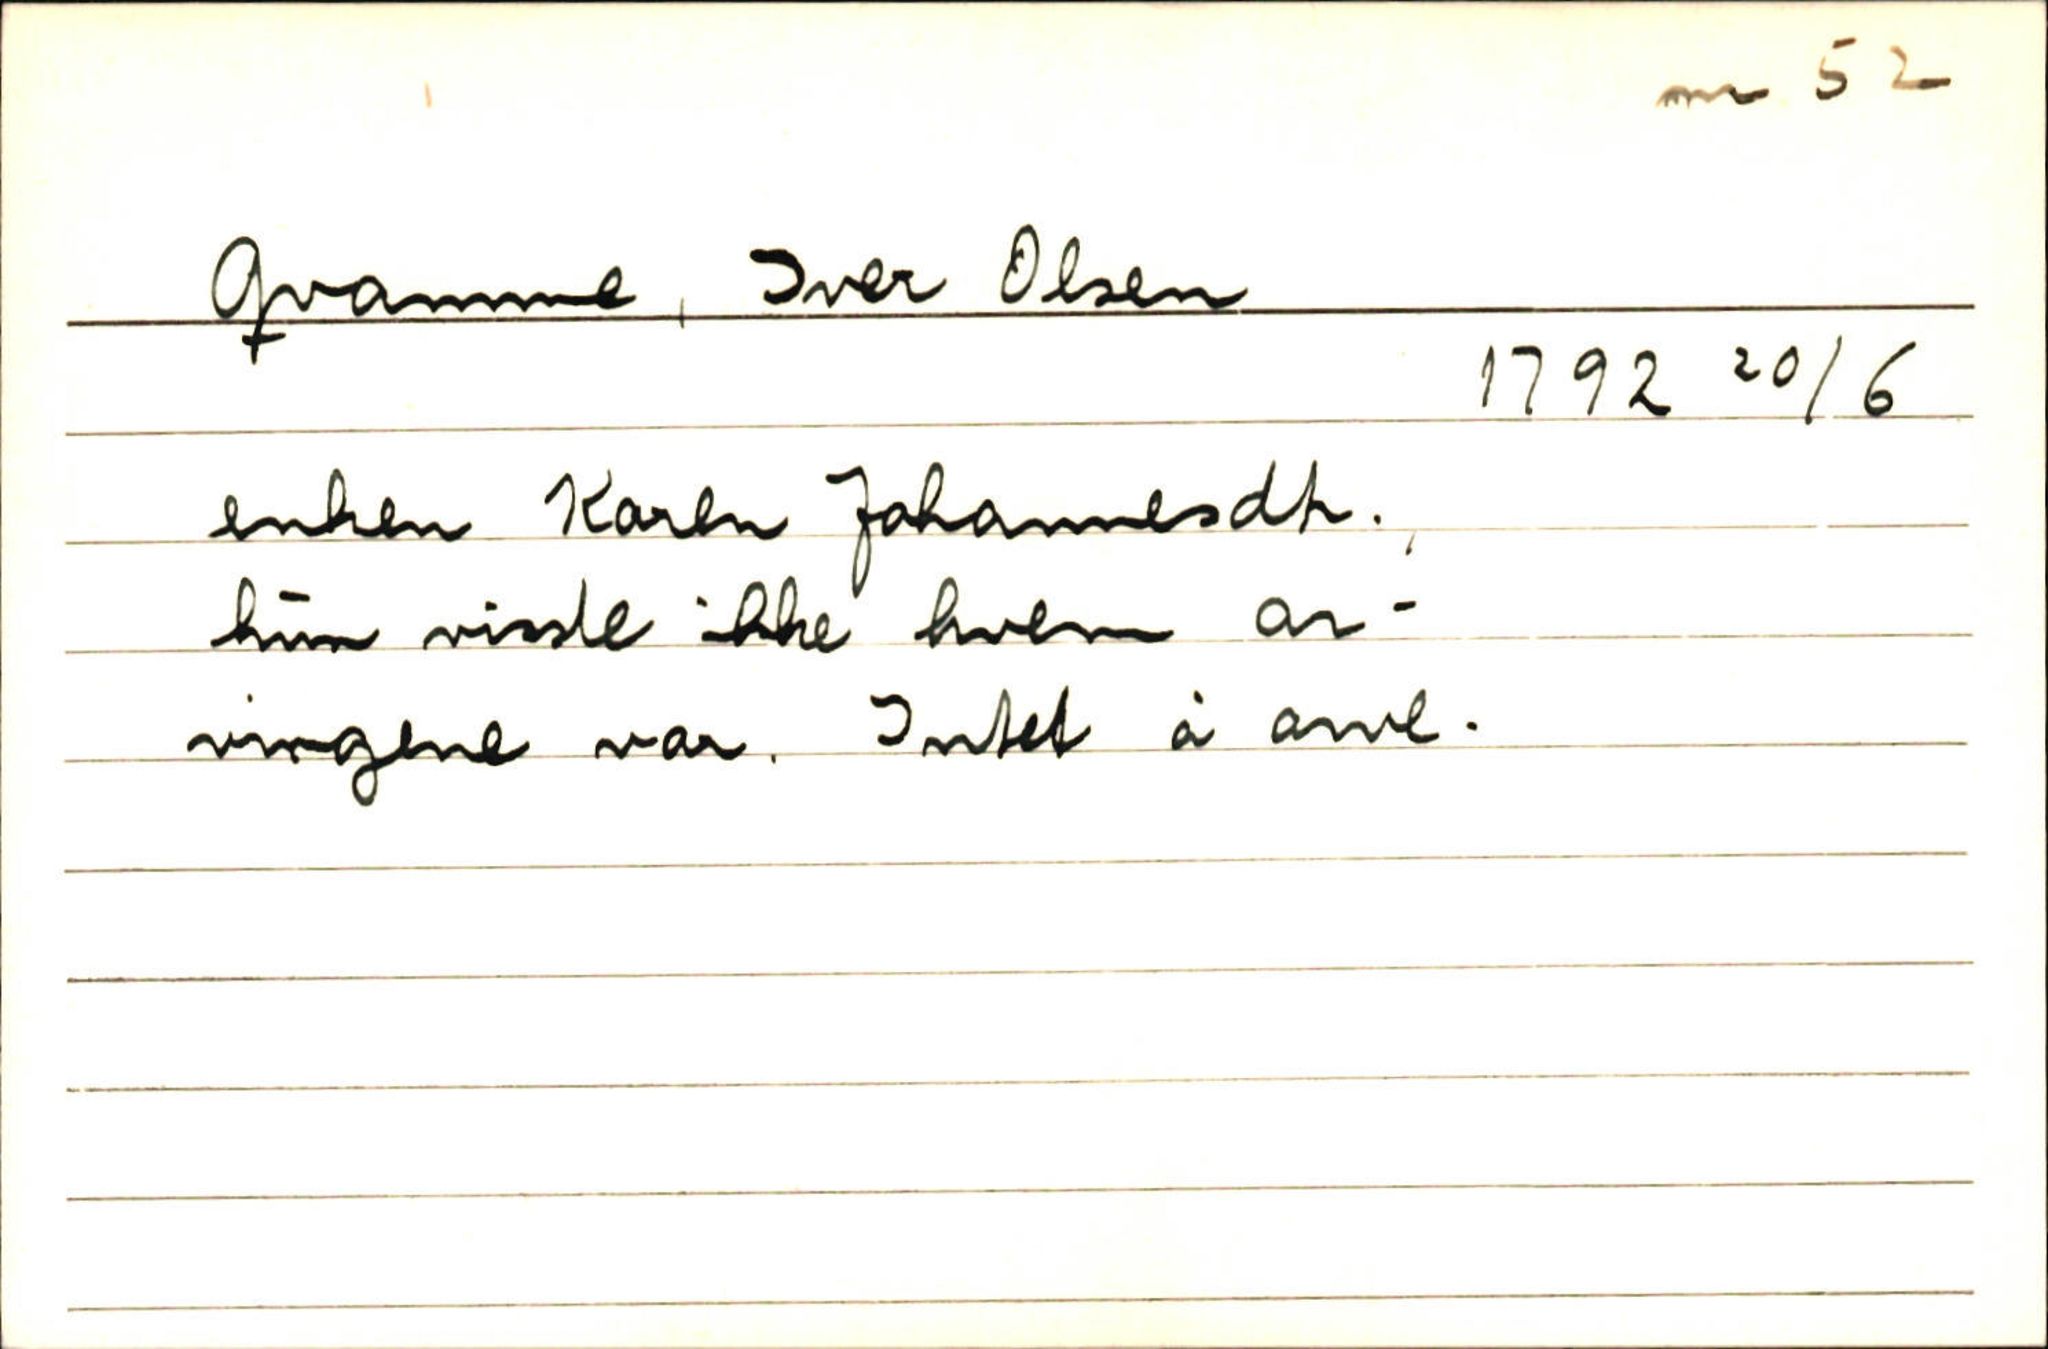 nr 52
Qvamme, Iver Olsen
1792 20/6
enken Karen Johannesdtr.,
hun visste ikke hvem ar-
vingene var. Intet å arve.